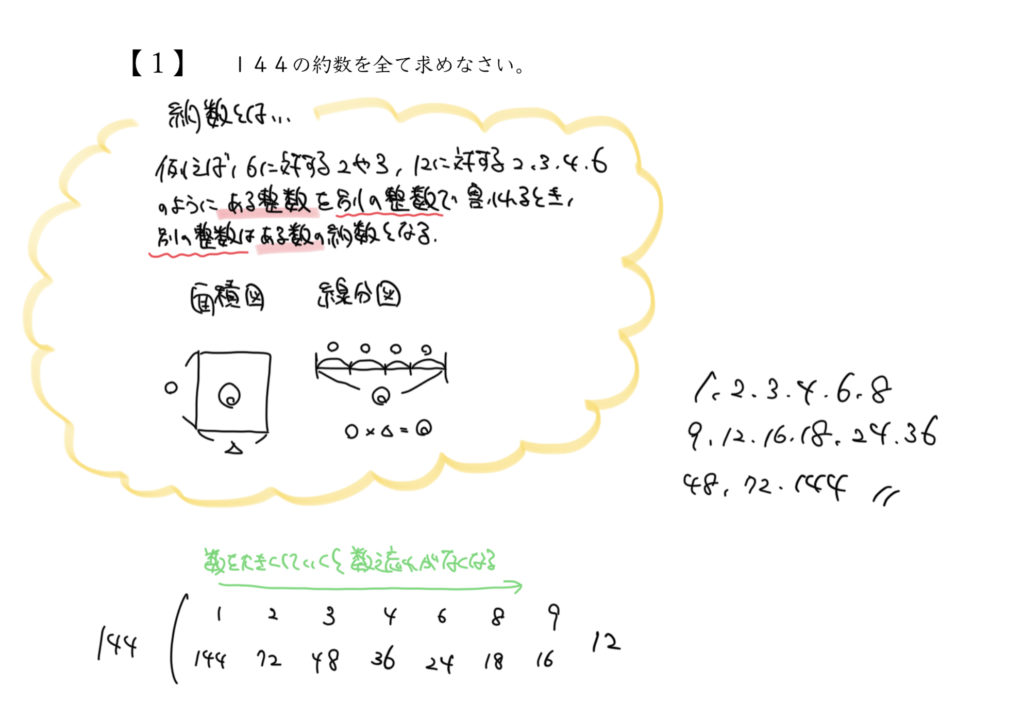 【１】 １４４の約数を全て求めなさい。
約数とは...
例えば、6に対する2や3, 12に対する2.3.4.6
のようにある整数を別の整数で割れるとき、
別の整数はある数の約数となる.
面積図 線分図
○ ○ ○ ○
○ ◎
◎
△
○×△=◎
1. 2. 3. 4. 6. 8
9. 12. 16. 18. 24. 36
48. 72. 144 〃
数を大きくしていくと数え忘れがなくなる
1 2 3 4 6 8 9
144 12
144 72 48 36 24 18 16